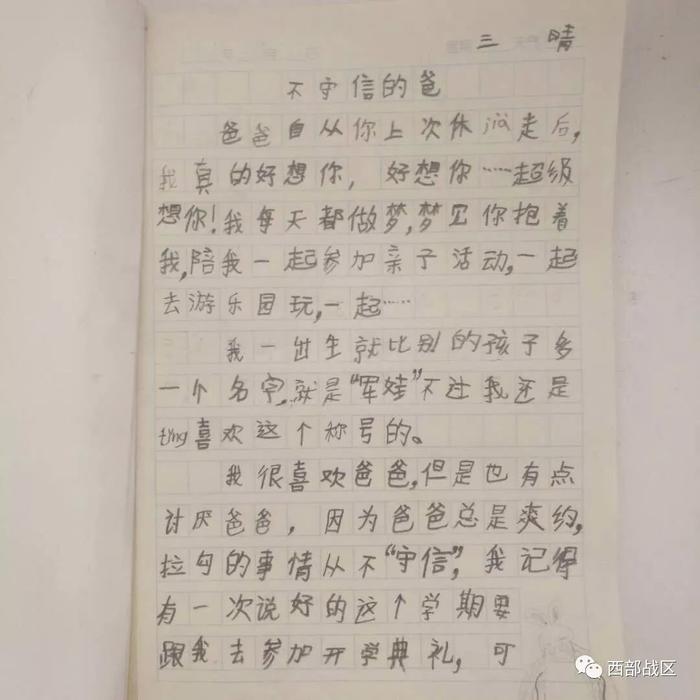 三 晴
不守信的爸
爸爸自从你上次休假走后,
我真的好想你，好想你……超级
想你!我每天都做梦,梦见你抱着
我,陪我一起参加亲子活动,一起
去游乐园玩,一起……
我一出生就比别的孩子多
一个名字,就是“军娃”不过我还是
ting喜欢这个称号的。
我很喜欢爸爸,但是也有点
讨厌爸爸，因为爸爸总是爽约,
拉勾的事情从不“守信”,我记得
有一次说好的这个学期要
跟我去参加开学典礼，可
西部战区